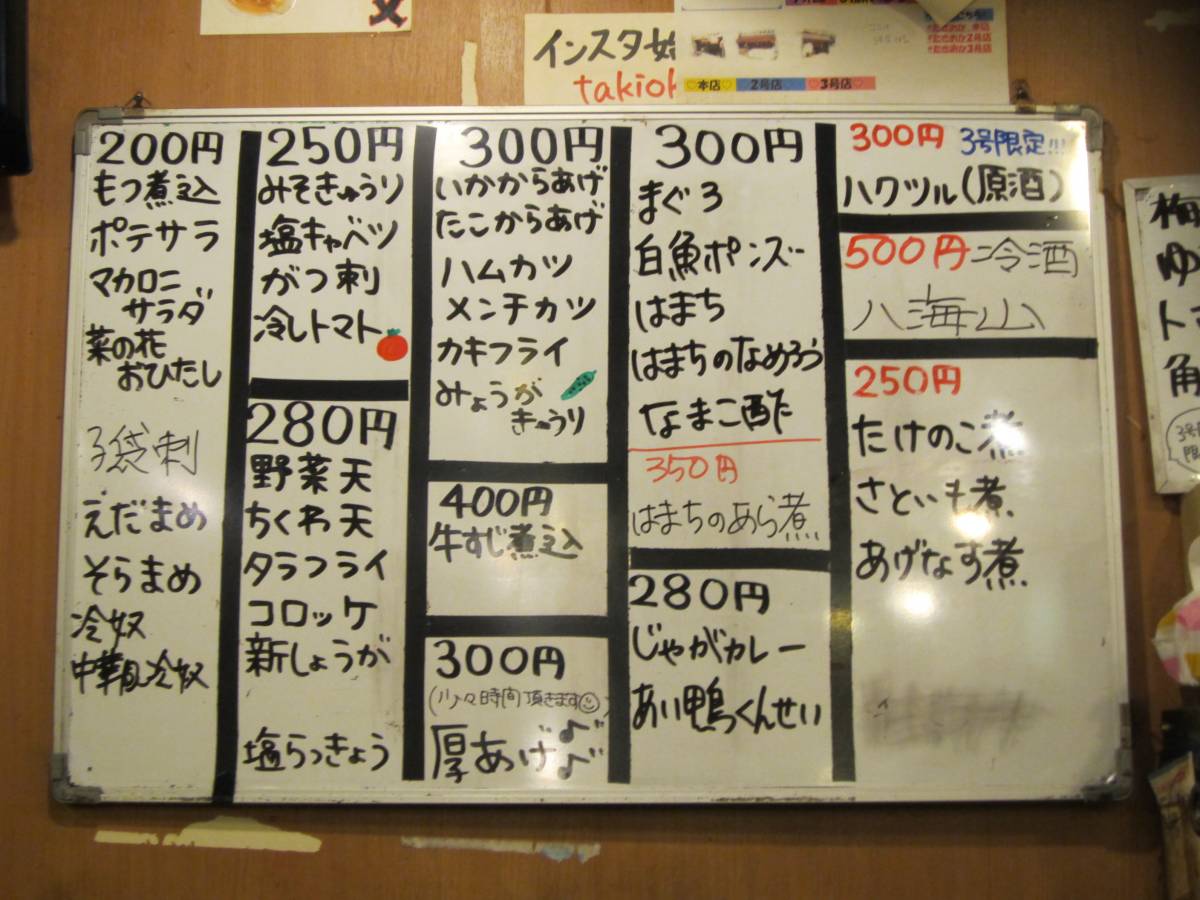 インスタ始
takiok
♡本店♡ 2号店♡ ♡3号店♡
200円
もつ煮込
ポテサラ
マカロニ
サラダ
菜の花
おひたし
子袋刺
えだまめ
そらまめ
冷奴
中華風冷奴
250円
みそきゅうり
塩キャベツ
がつ刺
冷しトマト
280円
野菜天
ちくわ天
タラフライ
コロッケ
新しょうが
塩らっきょう
300円
いかからあげ
たこからあげ
ハムカツ
メンチカツ
カキフライ
みょうが
きゅうり
400円
牛すじ煮込
300円
(少々時間頂きます)
厚あげ
300円
まぐろ
白魚ポンズー
はまち
はまちのなめろう
なまこ酢
350円
はまちのあら煮
280円
じゃがカレー
あい鴨くんせい
300円 3号限定!!!
ハクツル(原酒)
500円 冷酒
八海山
250円
たけのこ煮
さといも煮
あげなす煮
梅
ゆ
ト
角